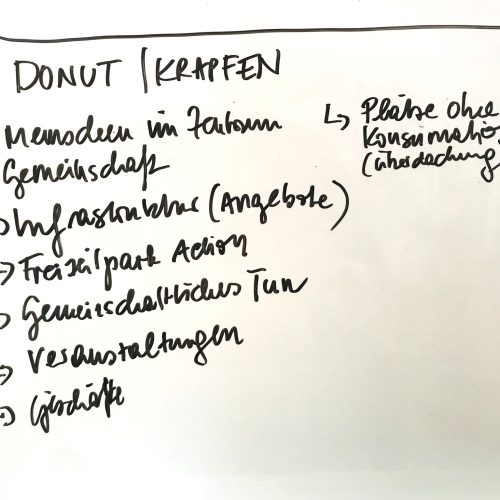 DONUT | KRAPFEN
Menschen im Zentrum
Gemeinschaft
Infrastruktur (Angebote)
→ Freizeitpark Action
Gemeinschaftliches Tun
→ Veranstaltungen
→ Geschäfte
↳ Plätze ohne
Konsumatio
(Überdachung